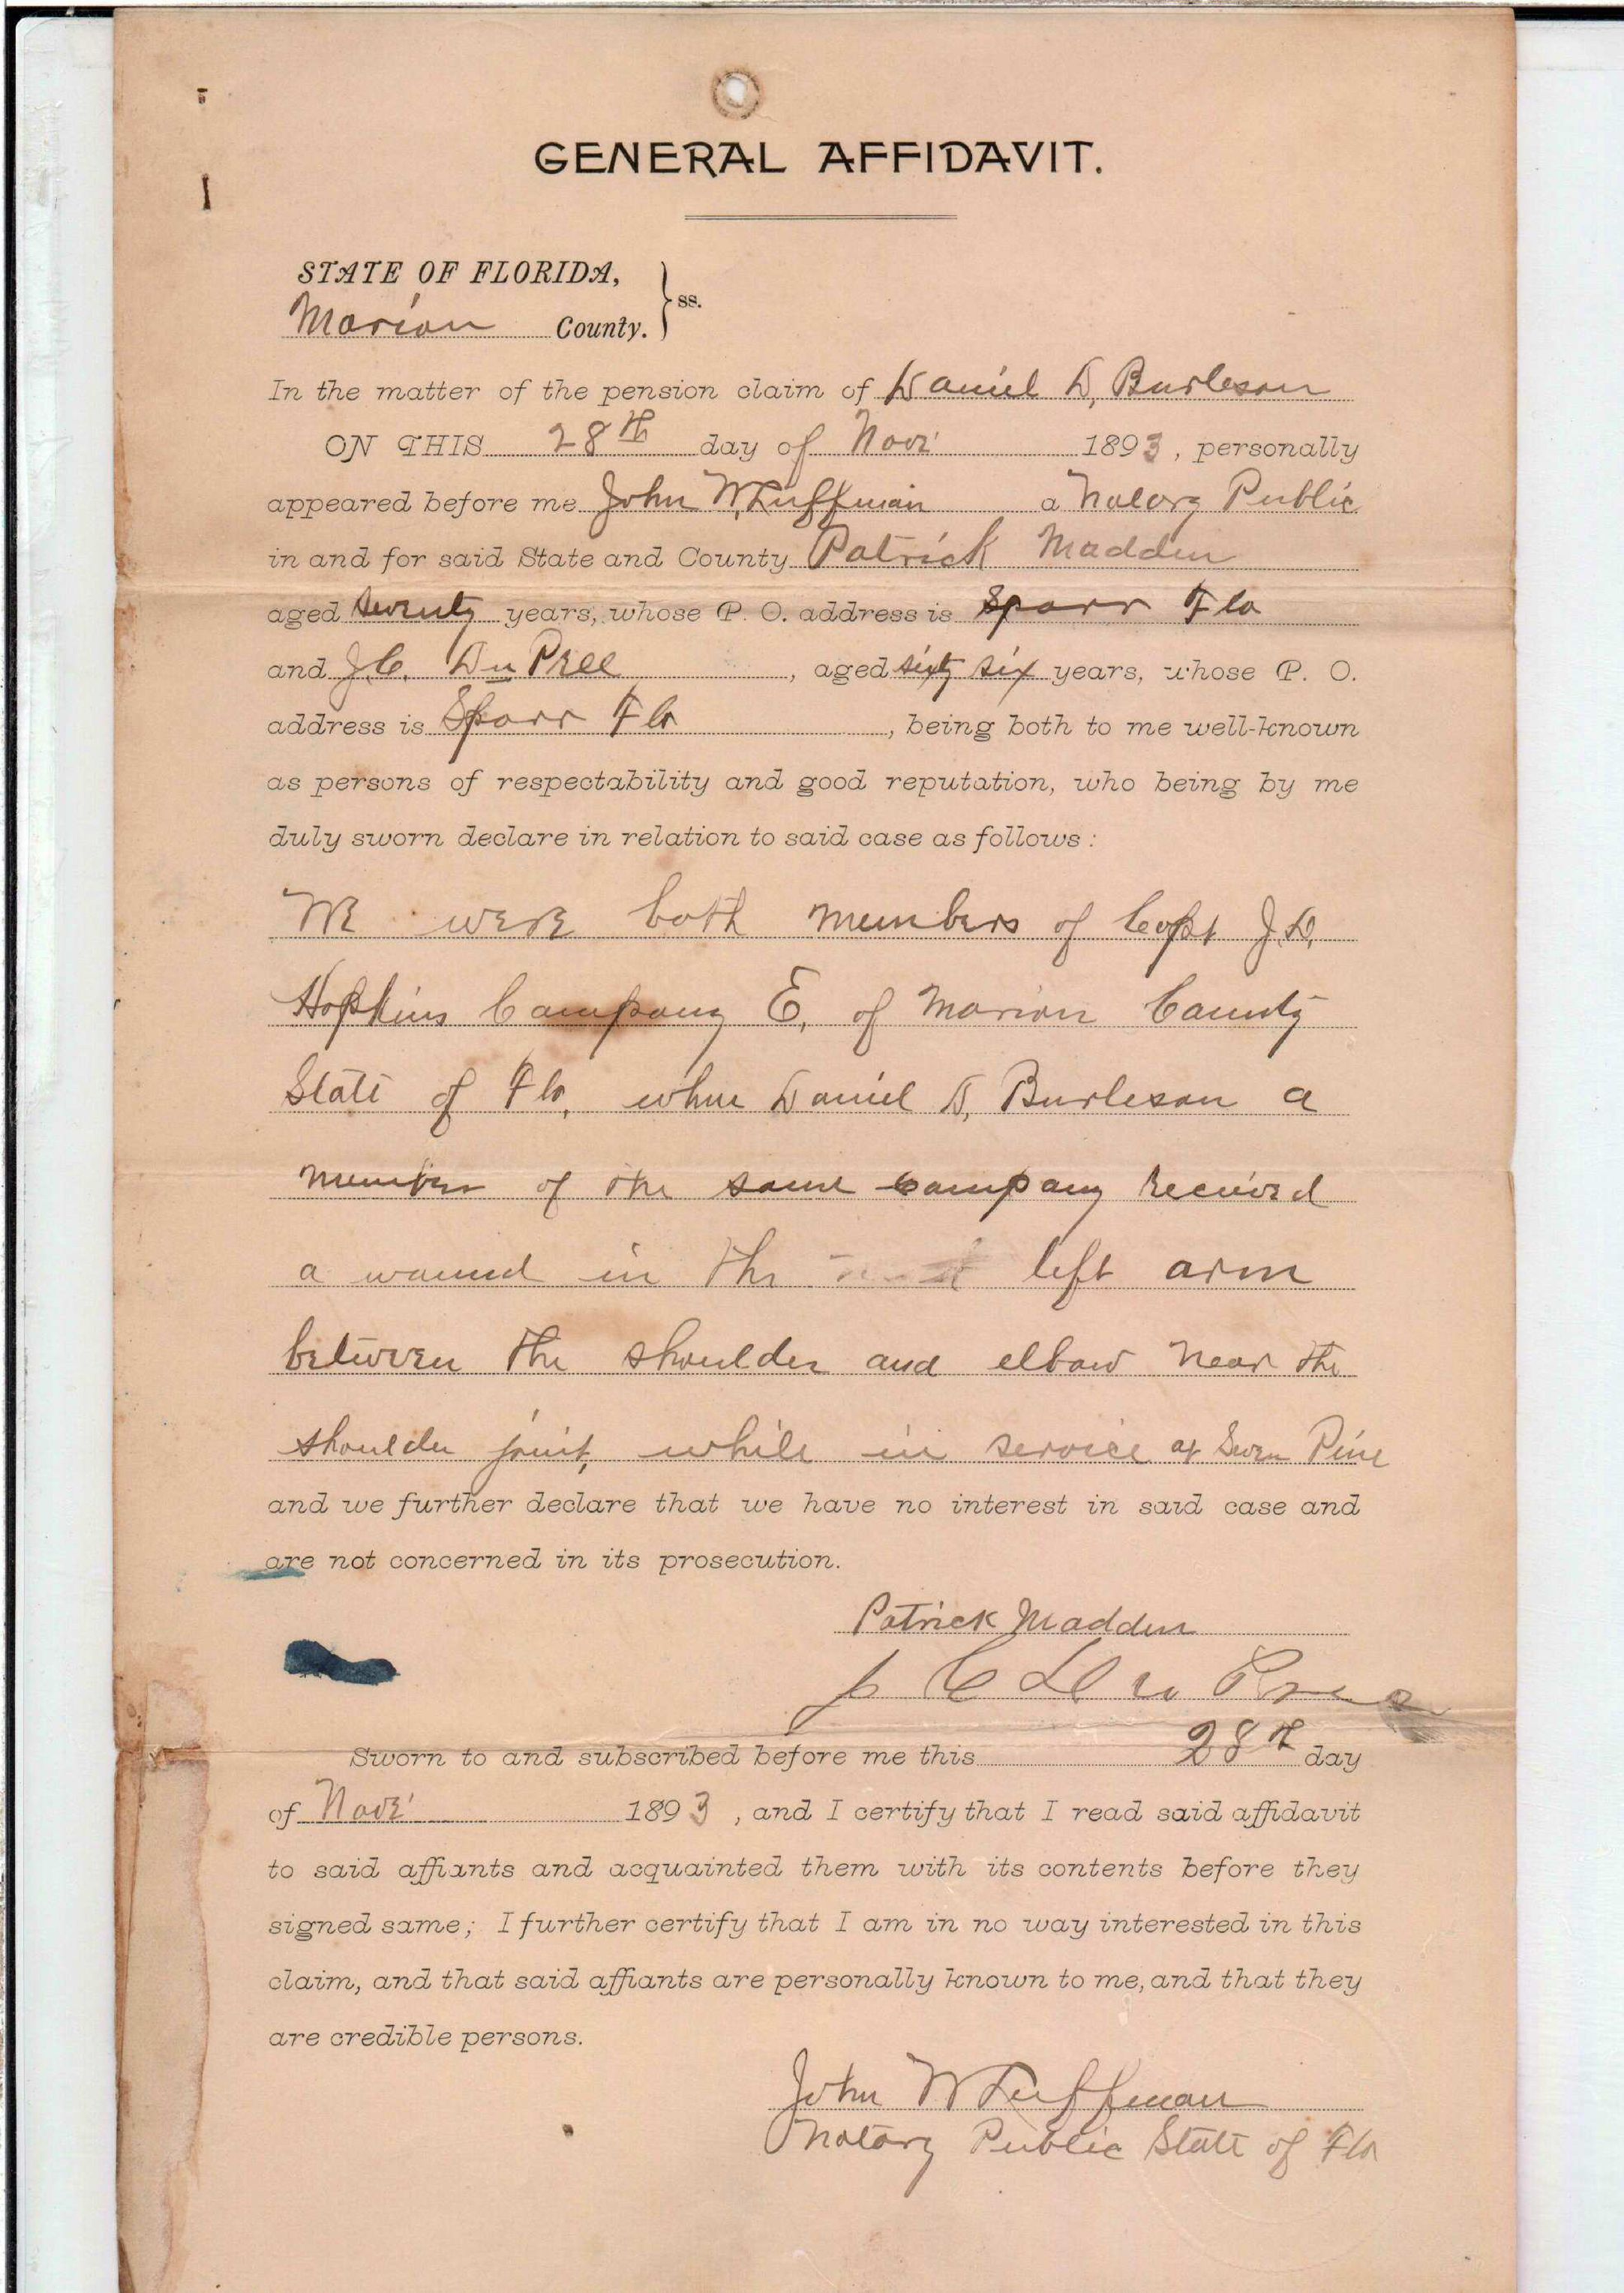 GENERAL AFFIDAVIT.
STATE OF FLORIDA,
Marion County. } ss.
In the matter of the pension claim of Daniel D, Burleson
ON THIS 28th day of Nov' 1893, personally
appeared before me John W, Luffman a Notary Public
in and for said State and County Patrick Madden
aged Seventy years, whose P. O. address is Sparr Fla
and J.C. Du Pree, aged sixty six years, whose P. O.
address is Sparr Fla, being both to me well-known
as persons of respectability and good reputation, who being by me
duly sworn declare in relation to said case as follows:
We were both members of Capt J.D,
Hopkins Company E, of Marion County
State of Fla, when Daniel D, Burleson a
member of the same company received
a wound in the left arm
between the shoulder and elbow near the
shoulder joint, while in service at Seven Pine
and we further declare that we have no interest in said case and
are not concerned in its prosecution.
Patrick Madden
J C Du Pree
Sworn to and subscribed before me this 28th day
of Nov' 1893, and I certify that I read said affidavit
to said affiants and acquainted them with its contents before they
signed same; I further certify that I am in no way interested in this
claim, and that said affiants are personally known to me, and that they
are credible persons.
John W Luffman
Notary Public State of Fla